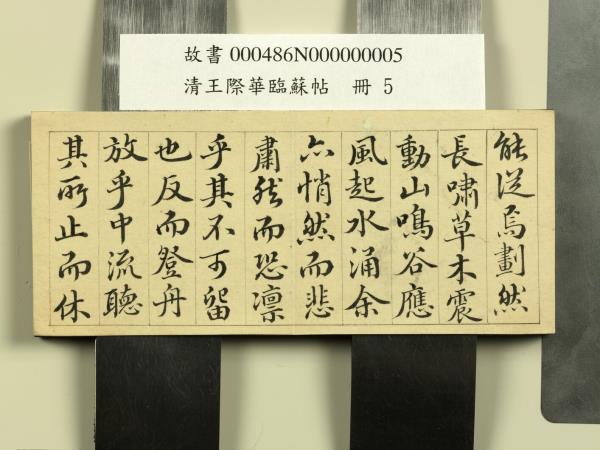 故書 000486N000000005
清王際華臨蘇帖 冊 5
能從焉劃然
長嘯草木震
動山鳴谷應
風起水涌余
亦悄然而悲
肅然而恐凛
乎其不可留
也反而登舟
放乎中流聽
其所止而休